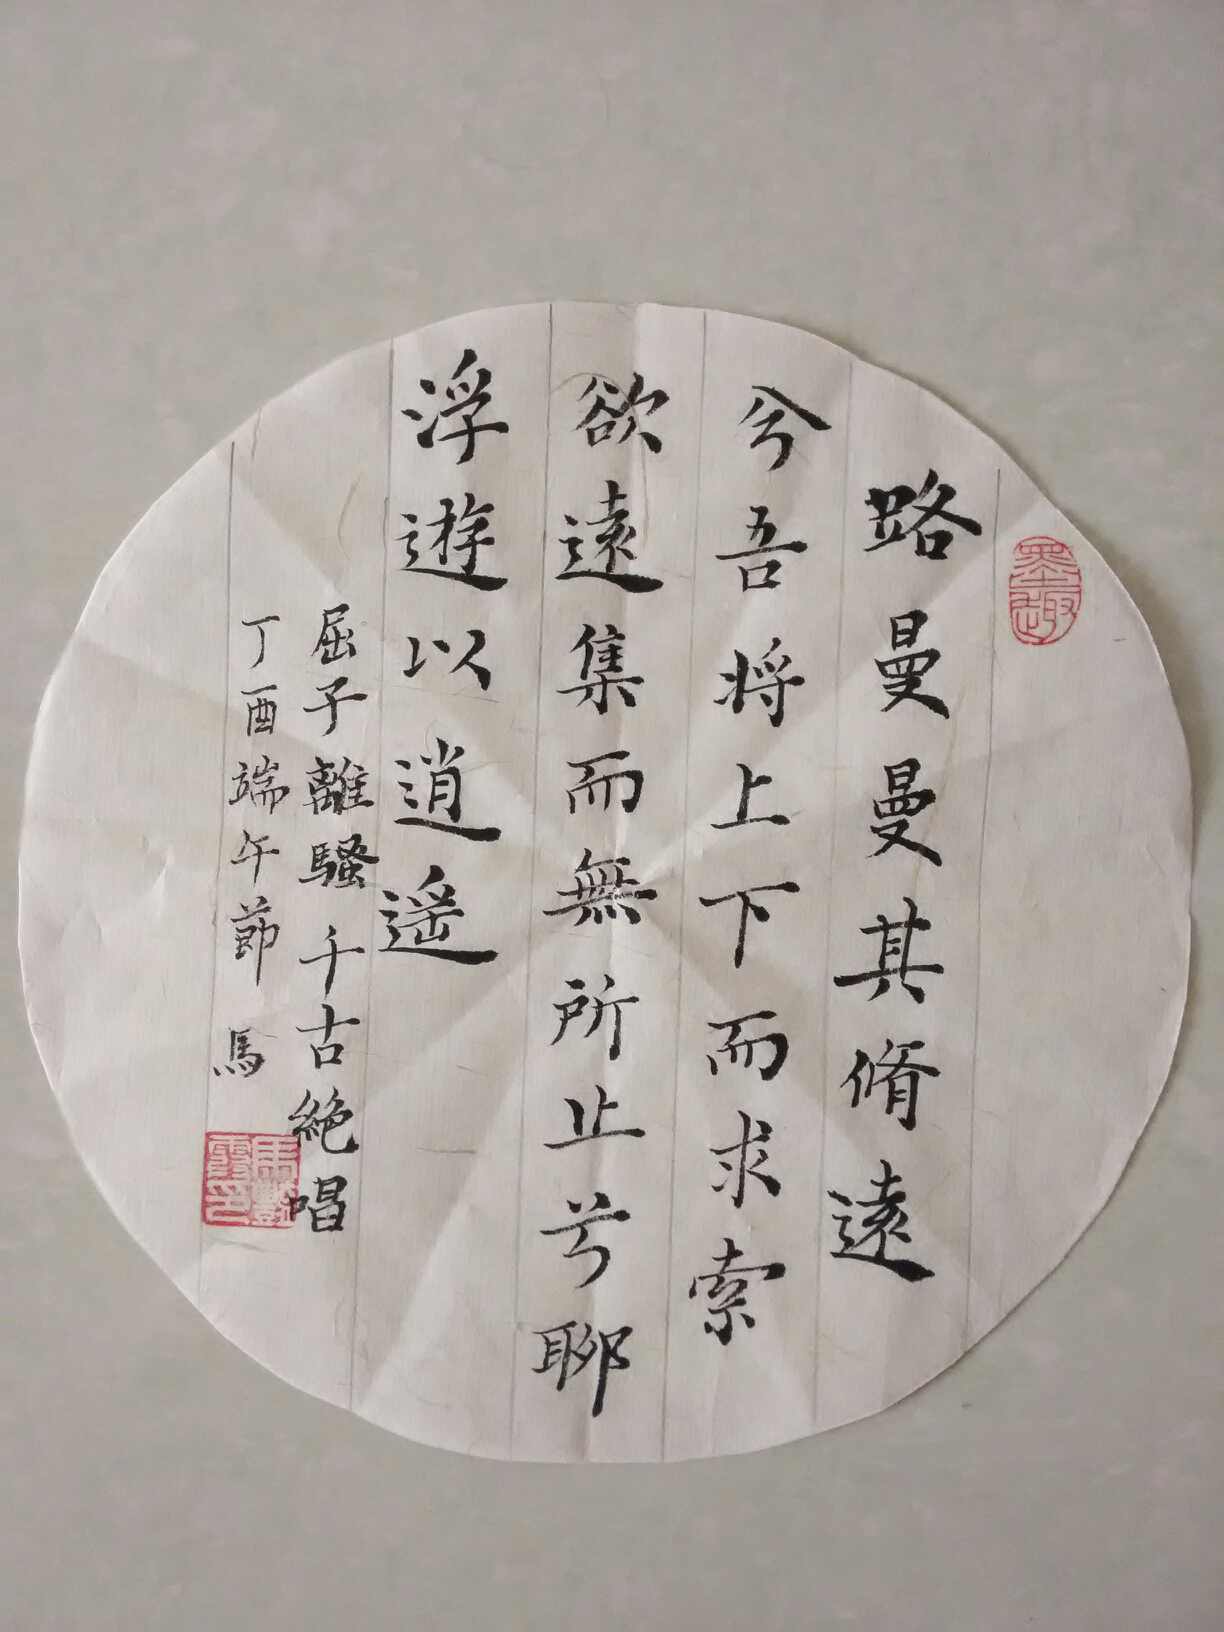 墨趣
路曼曼其脩遠
兮吾将上下而求索
欲遠集而無所止兮聊
浮遊以逍遥
屈子離騷千古絶唱
丁酉端午節 馬
馬艷霞印